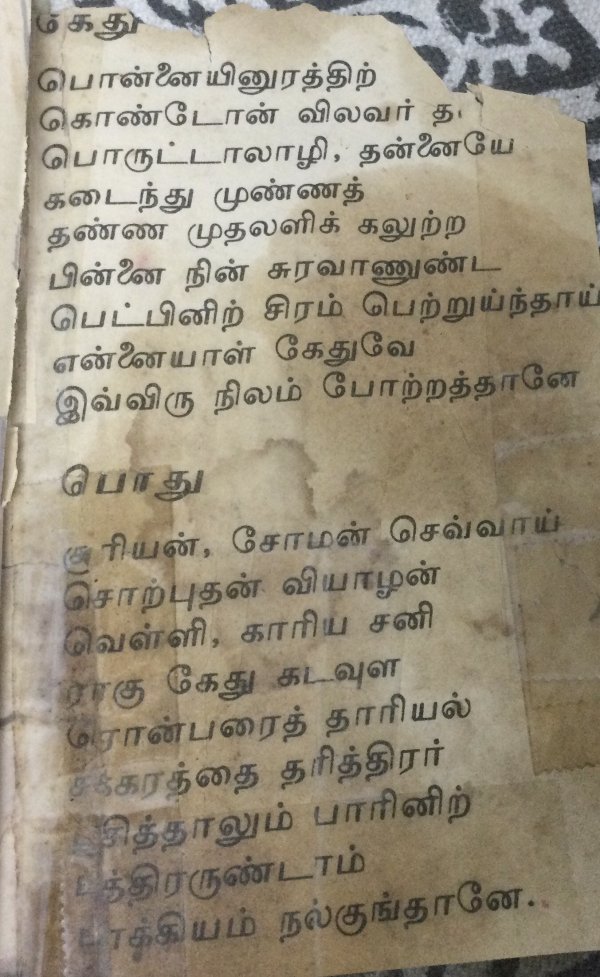 கேது
பொன்னையினுரத்திற்
கொண்டோன் விலவர் த
பொருட்டாலாழி, தன்னையே
கடைந்து முண்ணத்
தண்ண முதலளிக் கலுற்ற
பின்னை நின் சுரவாணுண்ட
பெட்பினிற் சிரம் பெற்றுய்ந்தாய்
என்னையாள் கேதுவே
இவ்விரு நிலம் போற்றத்தானே
பொது
சூரியன், சோமன் செவ்வாய்
சொற்புதன் வியாழன்
வெள்ளி, காரிய சனி
ராகு கேது கடவுள
ரொன்பரைத் தாரியல்
சக்கரத்தை தரித்திரர்
பாரினிற்
பாக்கியம் நல்குந்தானே.